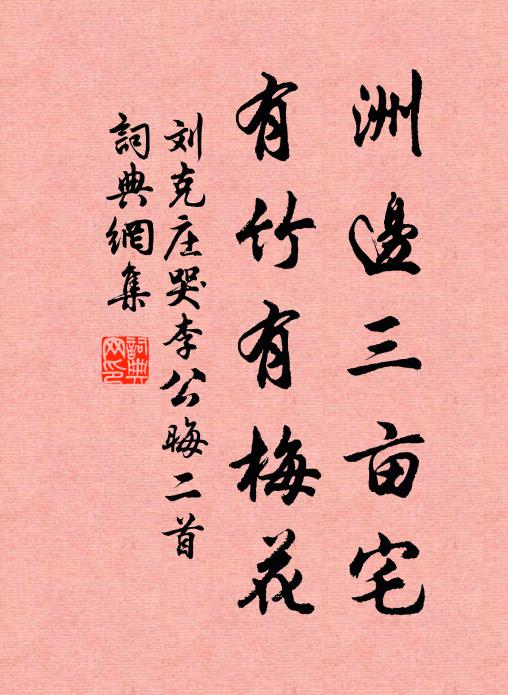 洲邊三亩宅
有竹有梅花
刘克庄哭李公晦二首
詞典網集
詞典
网印